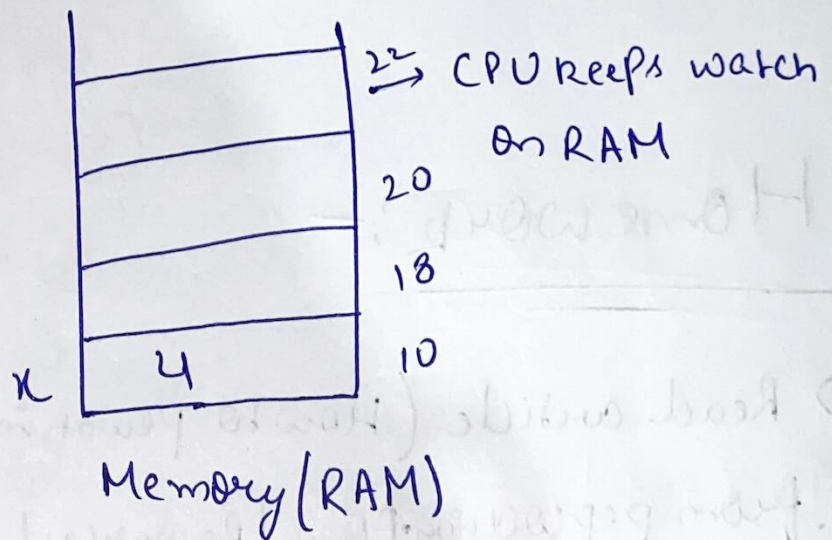 22 → CPU keeps watch
on RAM
20
18
x 4 10
Memory (RAM)